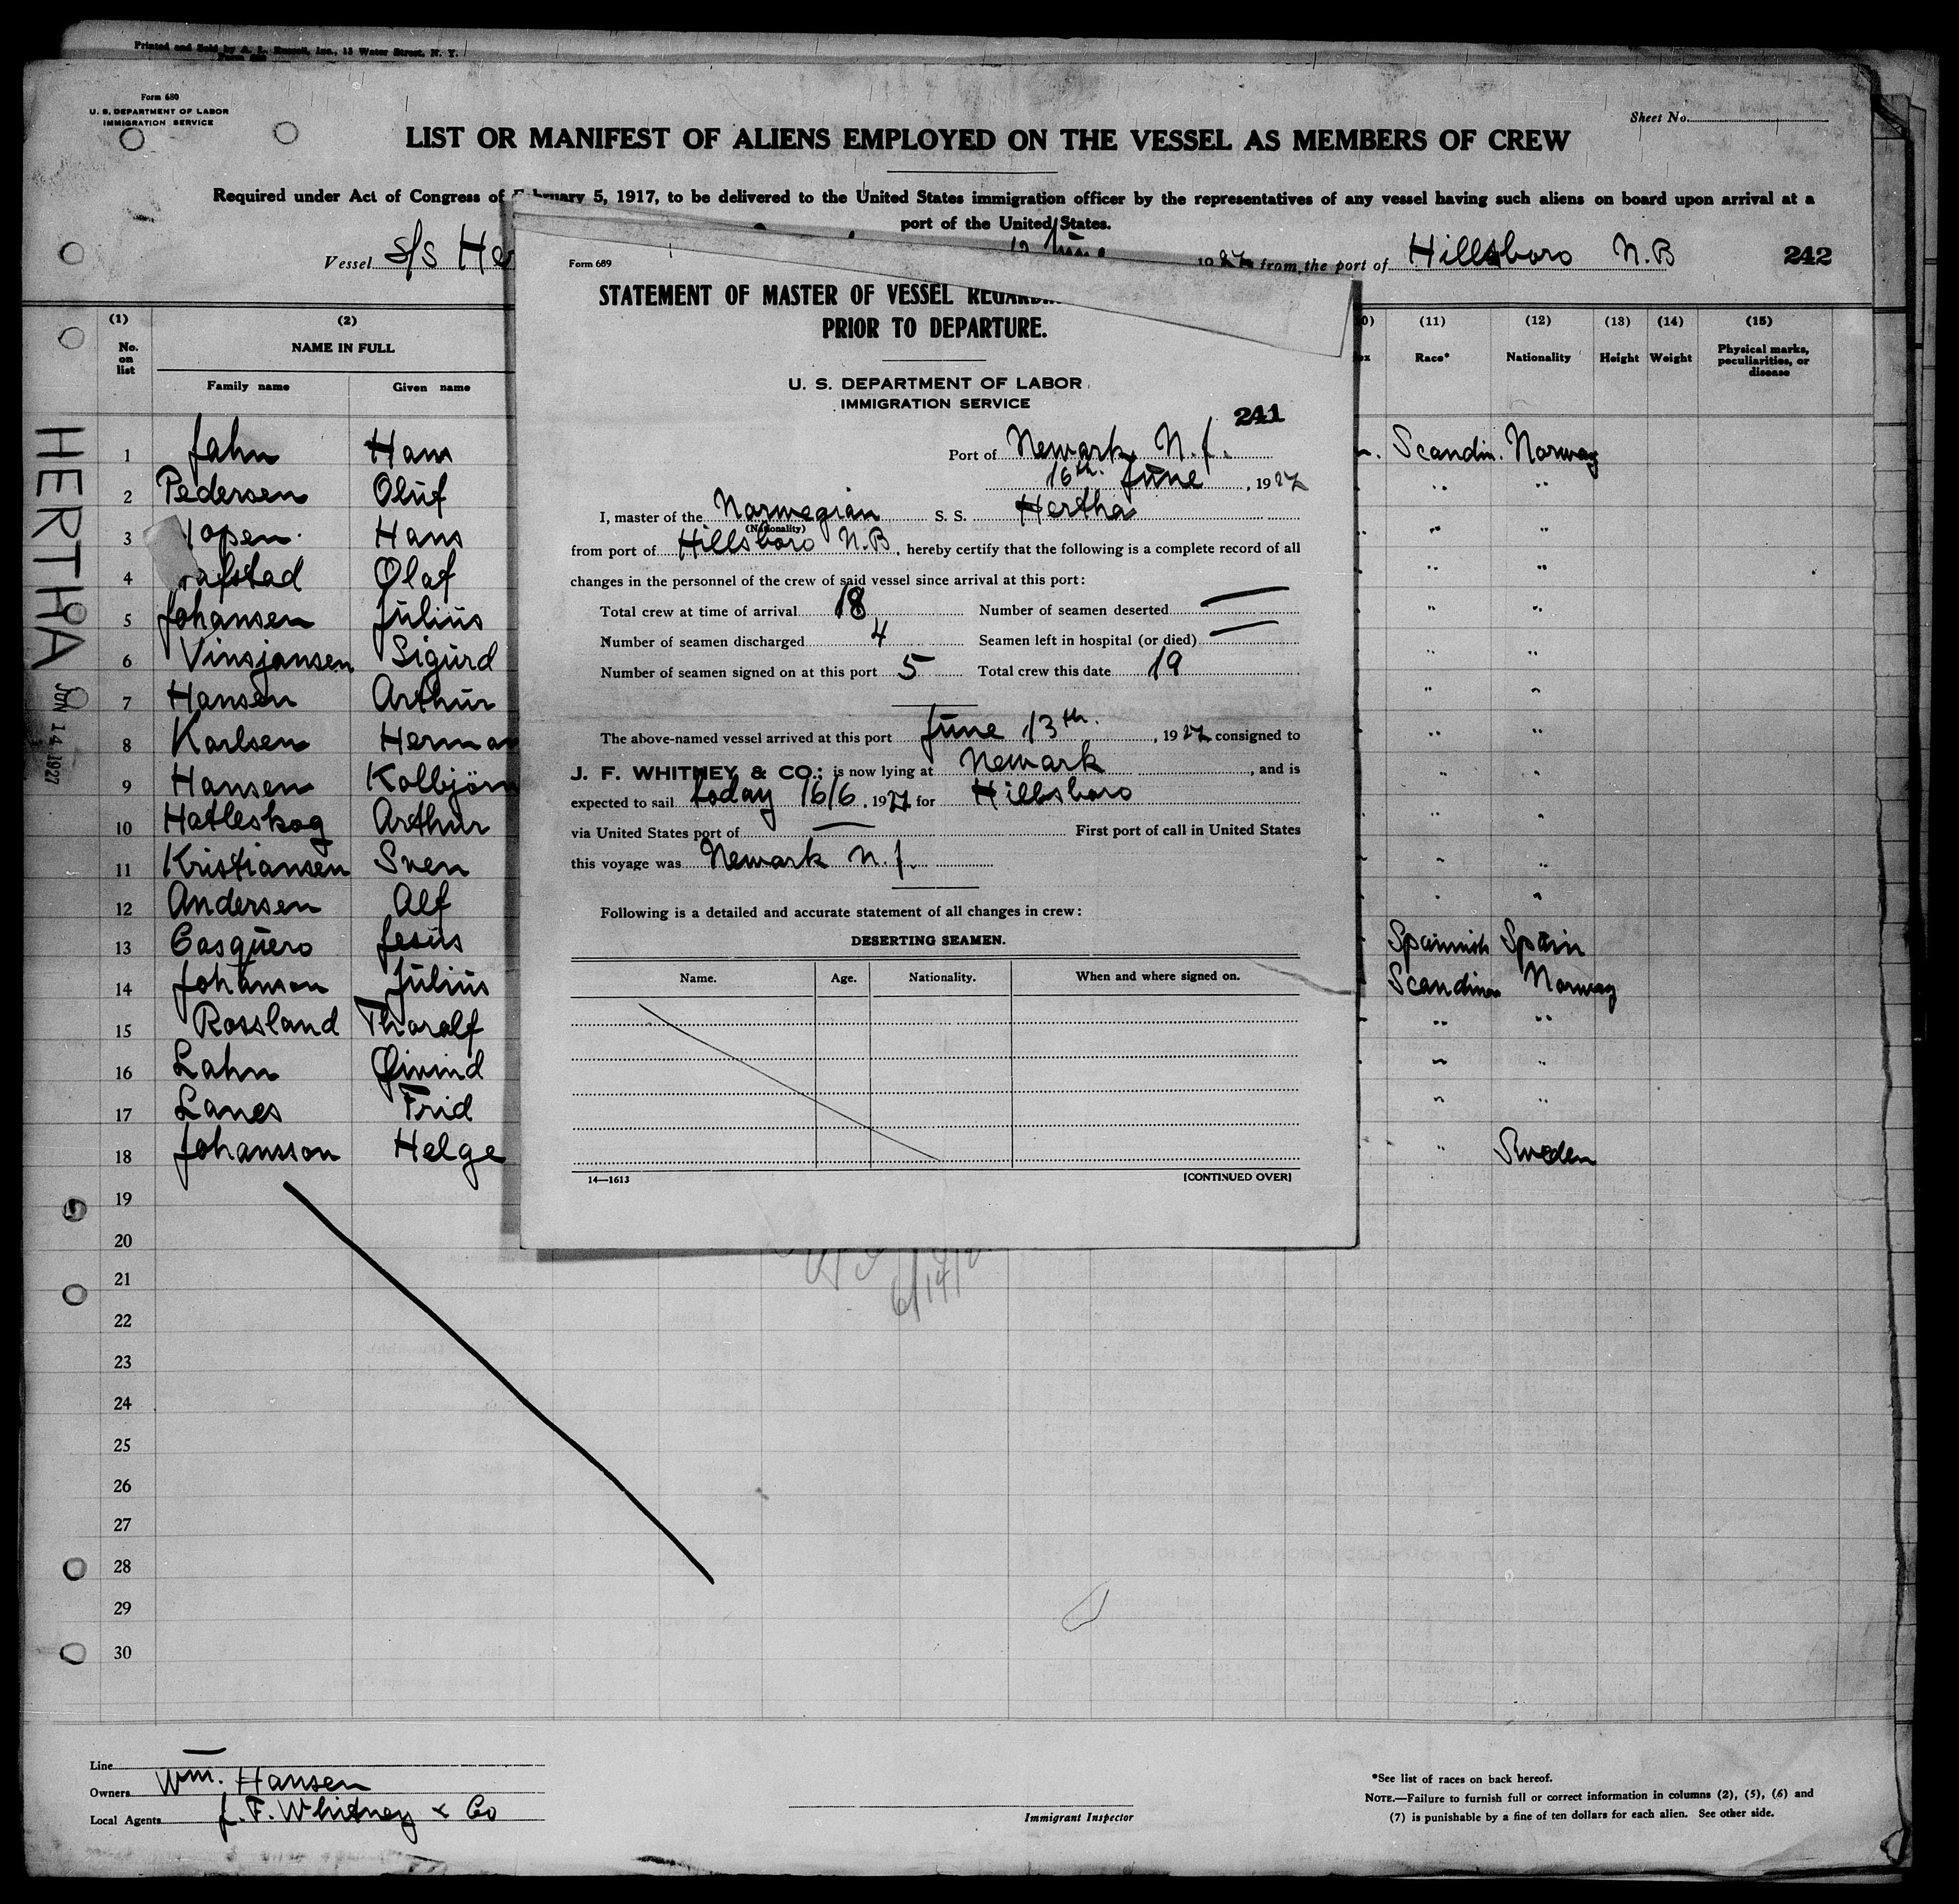 Printed and Sold by A. L. Russell, Inc., 13 Water Street, N. Y.
Form 680
U. S. DEPARTMENT OF LABOR
IMMIGRATION SERVICE
Sheet No.
LIST OR MANIFEST OF ALIENS EMPLOYED ON THE VESSEL AS MEMBERS OF CREW
Required under Act of Congress of February 5, 1917, to be delivered to the United States immigration officer by the representatives of any vessel having such aliens on board upon arrival at a
port of the United States.
Vessel S/S He
19 27 from the port of Hillsboro N.B 242
(1) (2) (11) (12) (13) (14) (15)
No. on list NAME IN FULL Race* Nationality Height Weight Physical marks, peculiarities, or disease
Family name Given name
HERTHA
JUN 14 1927
1 Jahn Hans Scandin. Norway
2 Pedersen Oluf " "
3 open Hans " "
4 afstad Olaf " "
5 Johansen Julius " "
6 Vinsjansen Sigurd " "
7 Hansen Arthur " "
8 Karlsen Herman " "
9 Hansen Kolbjörn " "
10 Hatleskog Arthur " "
11 Kristiansen Sven " "
12 Andersen Alf " "
13 Casquero Jesus Spannish Spain
14 Johanson Julius Scandinav Norway
15 Rossland Tharalf " "
16 Lahn Øivind " "
17 Lanes Frid " "
18 Johansson Helge " Sweden
19
20
21
22
23
24
25
26
27
28
29
30
6/14/
Line
Owners Wm. Hansen
Local Agents J. F. Whitney & Co
Immigrant Inspector
*See list of races on back hereof.
NOTE.—Failure to furnish full or correct information in columns (2), (5), (6) and
(7) is punishable by a fine of ten dollars for each alien. See other side.
Form 689
STATEMENT OF MASTER OF VESSEL REGARD
PRIOR TO DEPARTURE.
U. S. DEPARTMENT OF LABOR
IMMIGRATION SERVICE
241
Port of Newark, N.J.
16th. June, 1927
I, master of the Norwegian S. S. Hertha
(Nationality)
from port of Hillsboro N.B, hereby certify that the following is a complete record of all
changes in the personnel of the crew of said vessel since arrival at this port:
Total crew at time of arrival 18 Number of seamen deserted —
Number of seamen discharged 4 Seamen left in hospital (or died) —
Number of seamen signed on at this port 5 Total crew this date 19
The above-named vessel arrived at this port June 13th., 1927 consigned to
J. F. WHITNEY & CO.; is now lying at Newark, and is
expected to sail today 16/6, 1927 for Hillsboro
via United States port of — First port of call in United States
this voyage was Newark N.J.
Following is a detailed and accurate statement of all changes in crew:
DESERTING SEAMEN.
Name. Age. Nationality. When and where signed on.
14—1613 [CONTINUED OVER]